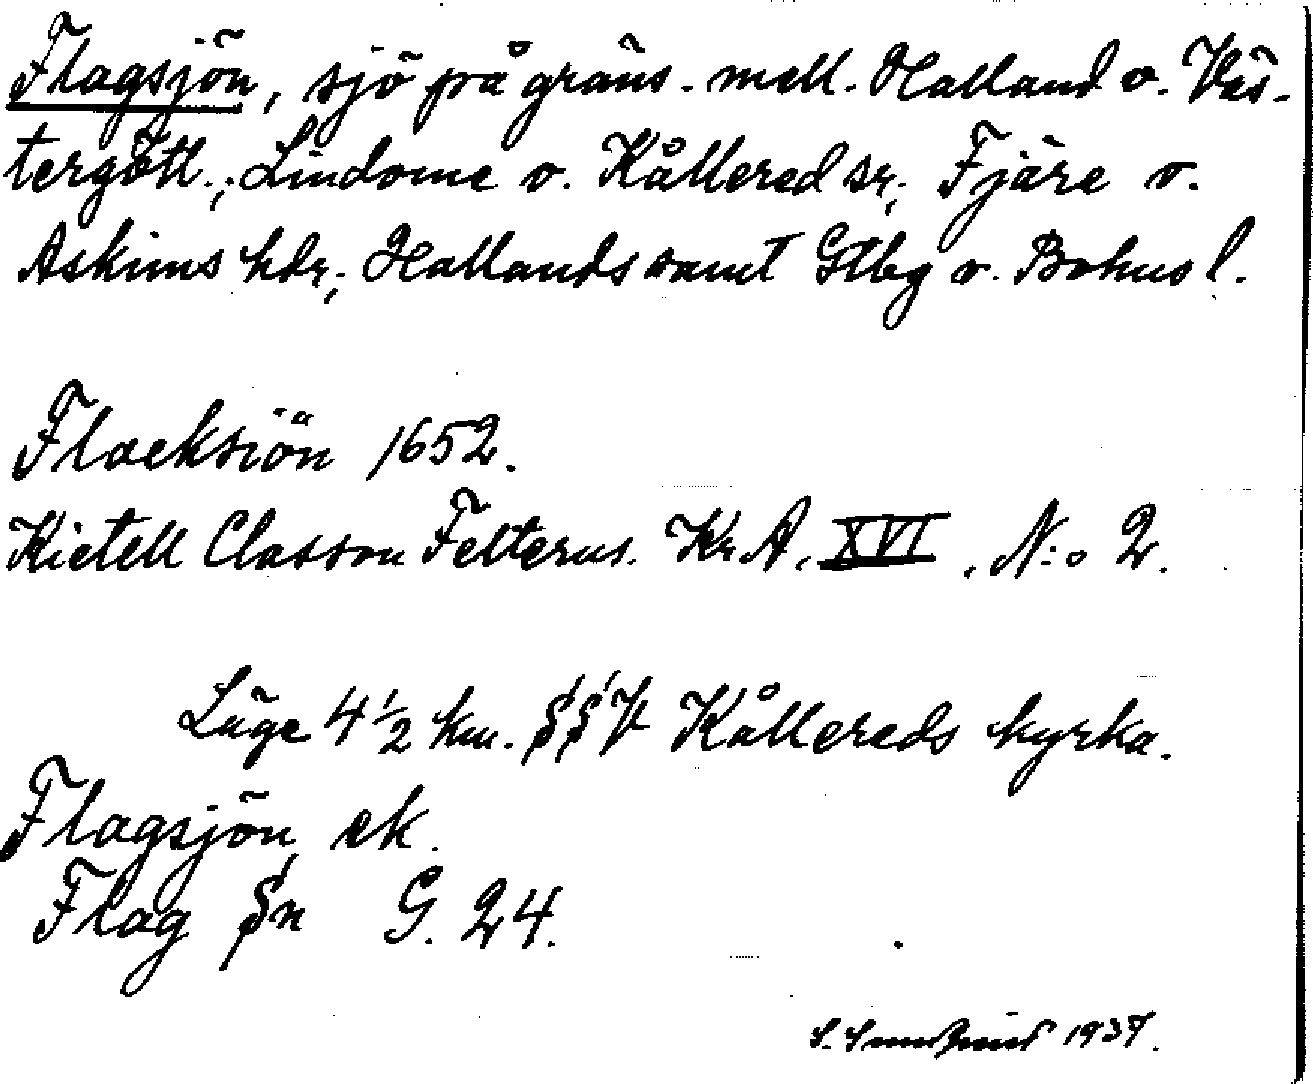 Flagsjön, sjö på gräns. mell. Halland o. Väs-
tergötl.; Lindome o. Kållered sr; Fjäre o.
Askims hdr; Hallands samt Gtbg o. Bohus l.
Flacksiön 1652.
Kietell Classon Felterus. Kr. A. XVI, N:o 2.
Läge 4 1/2 km. SSV Kållereds kyrka.
Flagsjön ek.
Flag Sn G. 24.
1937.